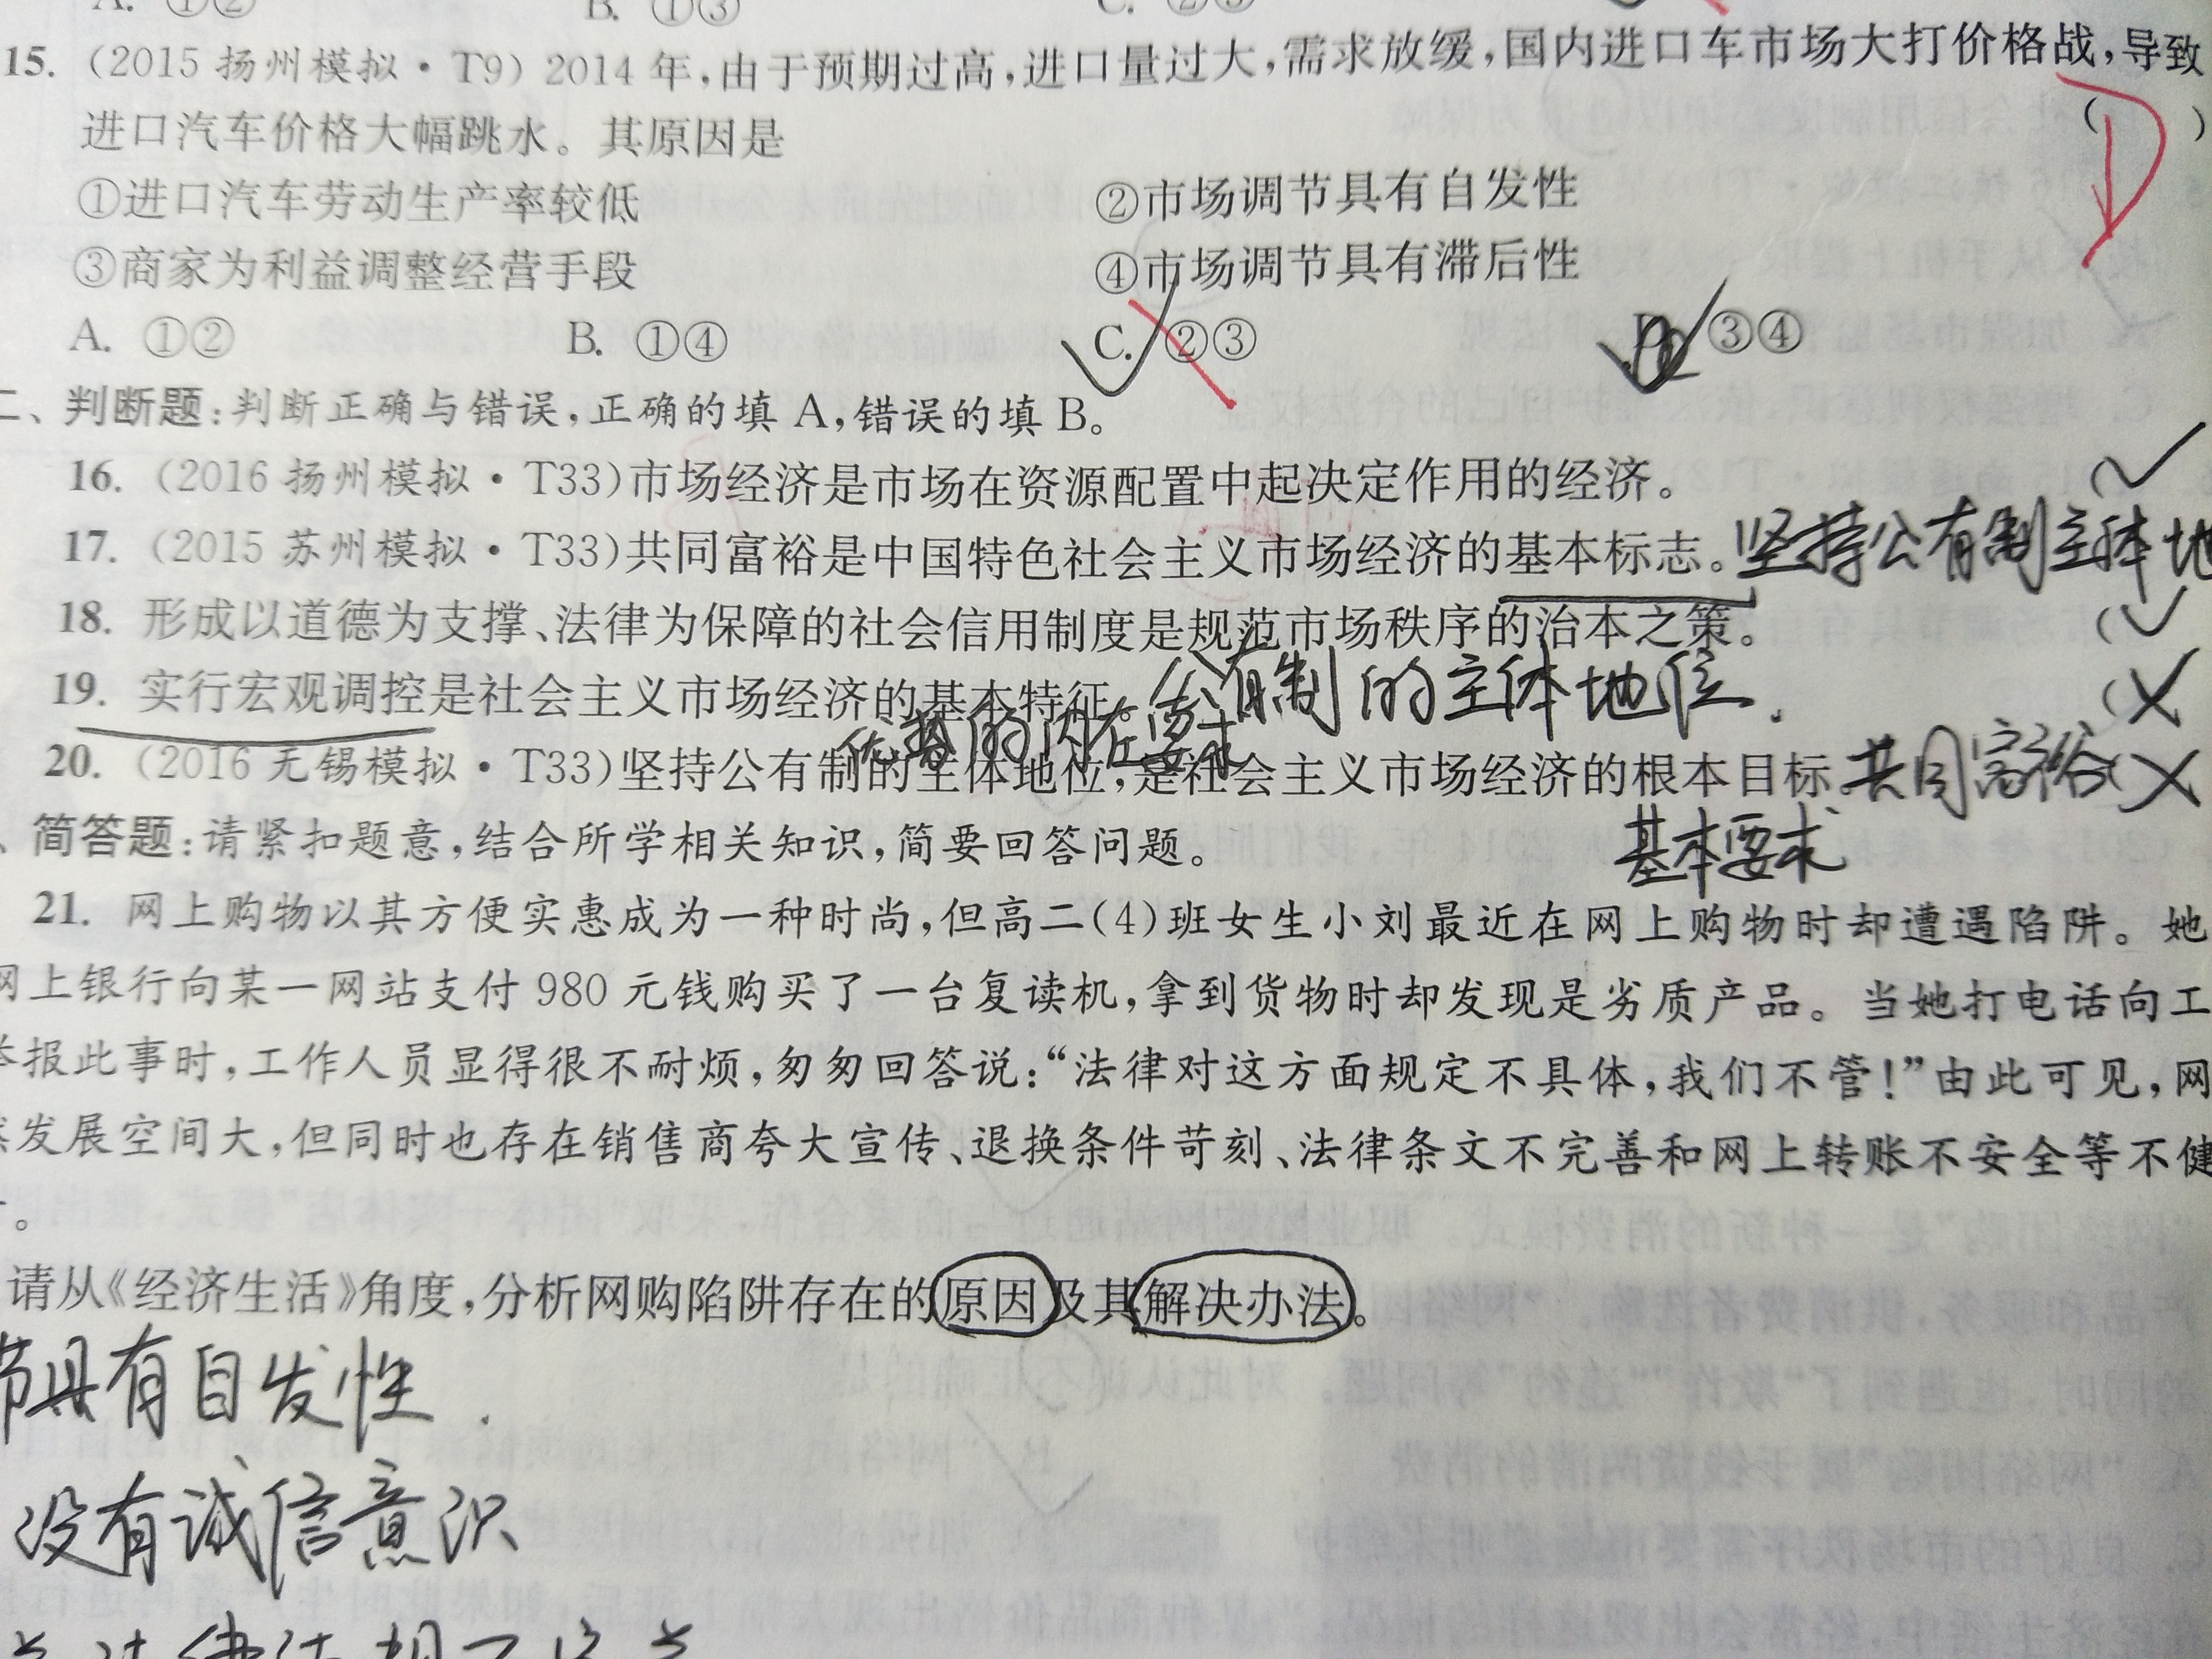 A. ①② B. ①③ C. ②③
15. (2015 扬州模拟·T9) 2014 年,由于预期过高,进口量过大,需求放缓,国内进口车市场大打价格战,导致
进口汽车价格大幅跳水。其原因是 ( )
D
①进口汽车劳动生产率较低 ②市场调节具有自发性
③商家为利益调整经营手段 ④市场调节具有滞后性
A. ①② B. ①④ C. ②③ D. ③④
二、判断题:判断正确与错误,正确的填 A,错误的填 B。
16. (2016 扬州模拟·T33)市场经济是市场在资源配置中起决定作用的经济。 (
17. (2015 苏州模拟·T33)共同富裕是中国特色社会主义市场经济的基本标志。坚持公有制主体地
18. 形成以道德为支撑、法律为保障的社会信用制度是规范市场秩序的治本之策。 (
19. 实行宏观调控是社会主义市场经济的基本特征。公有制的主体地位. (
优势的内在要求
20. (2016 无锡模拟·T33)坚持公有制的主体地位,是社会主义市场经济的根本目标。共同富裕 (
基本要求
、简答题:请紧扣题意,结合所学相关知识,简要回答问题。
21. 网上购物以其方便实惠成为一种时尚,但高二(4)班女生小刘最近在网上购物时却遭遇陷阱。她
网上银行向某一网站支付 980 元钱购买了一台复读机,拿到货物时却发现是劣质产品。当她打电话向工
举报此事时,工作人员显得很不耐烦,匆匆回答说:“法律对这方面规定不具体,我们不管!”由此可见,网
然发展空间大,但同时也存在销售商夸大宣传、退换条件苛刻、法律条文不完善和网上转账不安全等不健
。
请从《经济生活》角度,分析网购陷阱存在的原因及其解决办法。
节具有自发性.
没有诚信意识